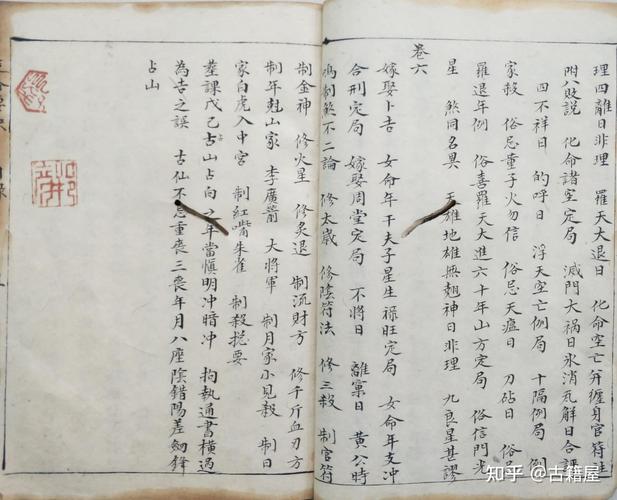 理四離日非理 羅天大退日 化命空亡弁纏身官符
附八敗説 化命諸空定局 滅門大禍日氷消瓦解日合
四不祥日 的呼日 浮天空亡例局 十隔例局
家殺 俗忌童子火勿信 俗忌天瘟日 刀砧日 俗
羅退年例 俗喜羅天大進六十年山方定局 俗信門光
星 煞同名異 天雄地雄無翹神日非理 九良星甚謬
卷六
嫁娶卜吉 女命年干夫子星生祿旺定局 女命年支冲
合刑定局 嫁娶周堂定局 不將日 離窠日 黄公時
制煞不二論 修太歲 修陰符法 修三殺 制官符
制金神 修火星 修炙退 制流財方 修千斤血刃方
制年尅山家 李廣箭 大將軍 制月家小兒殺 制日
家白虎入中宮 制紅嘴朱雀 制殺提要
塟課戊己古山占向之年當慎明冲暗冲 拘執通書橫過
為吉之誤 古仙不忌重喪三喪年月八座陰錯陽差劒鋒
占山
知乎 @古籍屋